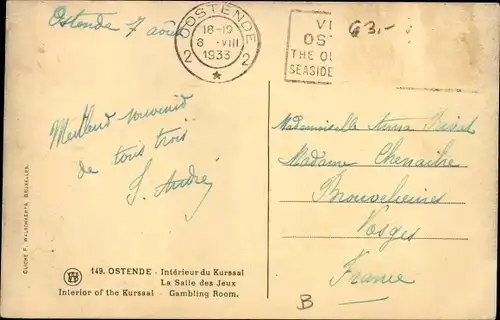 Ostende 7 août
OOSTENDE
18-19
8 ·VIII
1933
2 2
VI
OST
THE QU
SEASIDE
63.-
Meilleur souvenir
de tous trois
S. André
Mademoiselle Anna
Madame
Vosges
France
CLICHÉ F. WALSCHAERTS, BRUXELLES.
149. OSTENDE - Intérieur du Kursaal
La Salle des Jeux
Interior of the Kursaal - Gambling Room.
B